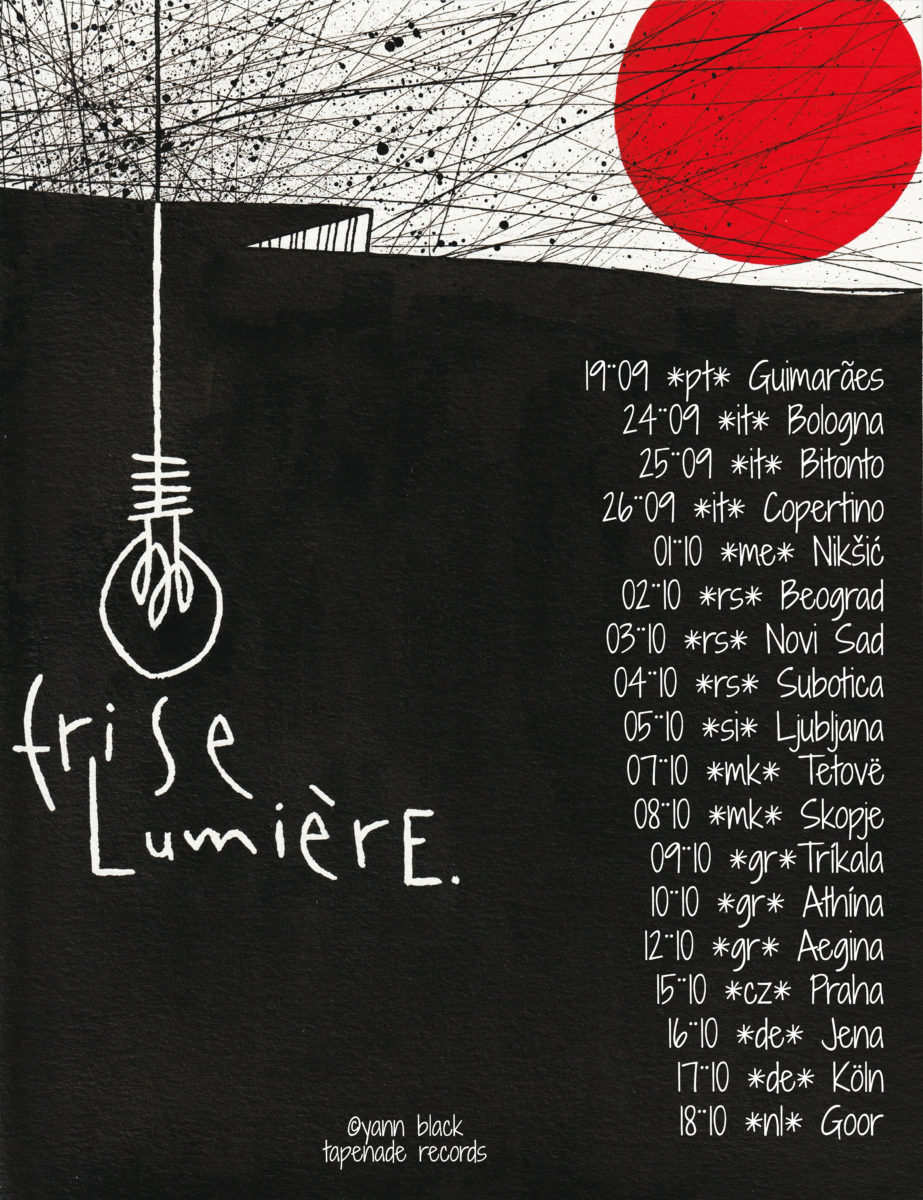 frise
Lumière.
19¨09 *pt* Guimarães
24¨09 *it* Bologna
25¨09 *it* Bitonto
26¨09 *it* Copertino
01¨10 *me* Nikšić
02¨10 *rs* Beograd
03¨10 *rs* Novi Sad
04¨10 *rs* Subotica
05¨10 *si* Ljubljana
07¨10 *mk* Tetovë
08¨10 *mk* Skopje
09¨10 *gr*Tríkala
10¨10 *gr* Athína
12¨10 *gr* Aegina
15¨10 *cz* Praha
16¨10 *de* Jena
17¨10 *de* Köln
18¨10 *nl* Goor
©yann black
tapenade records